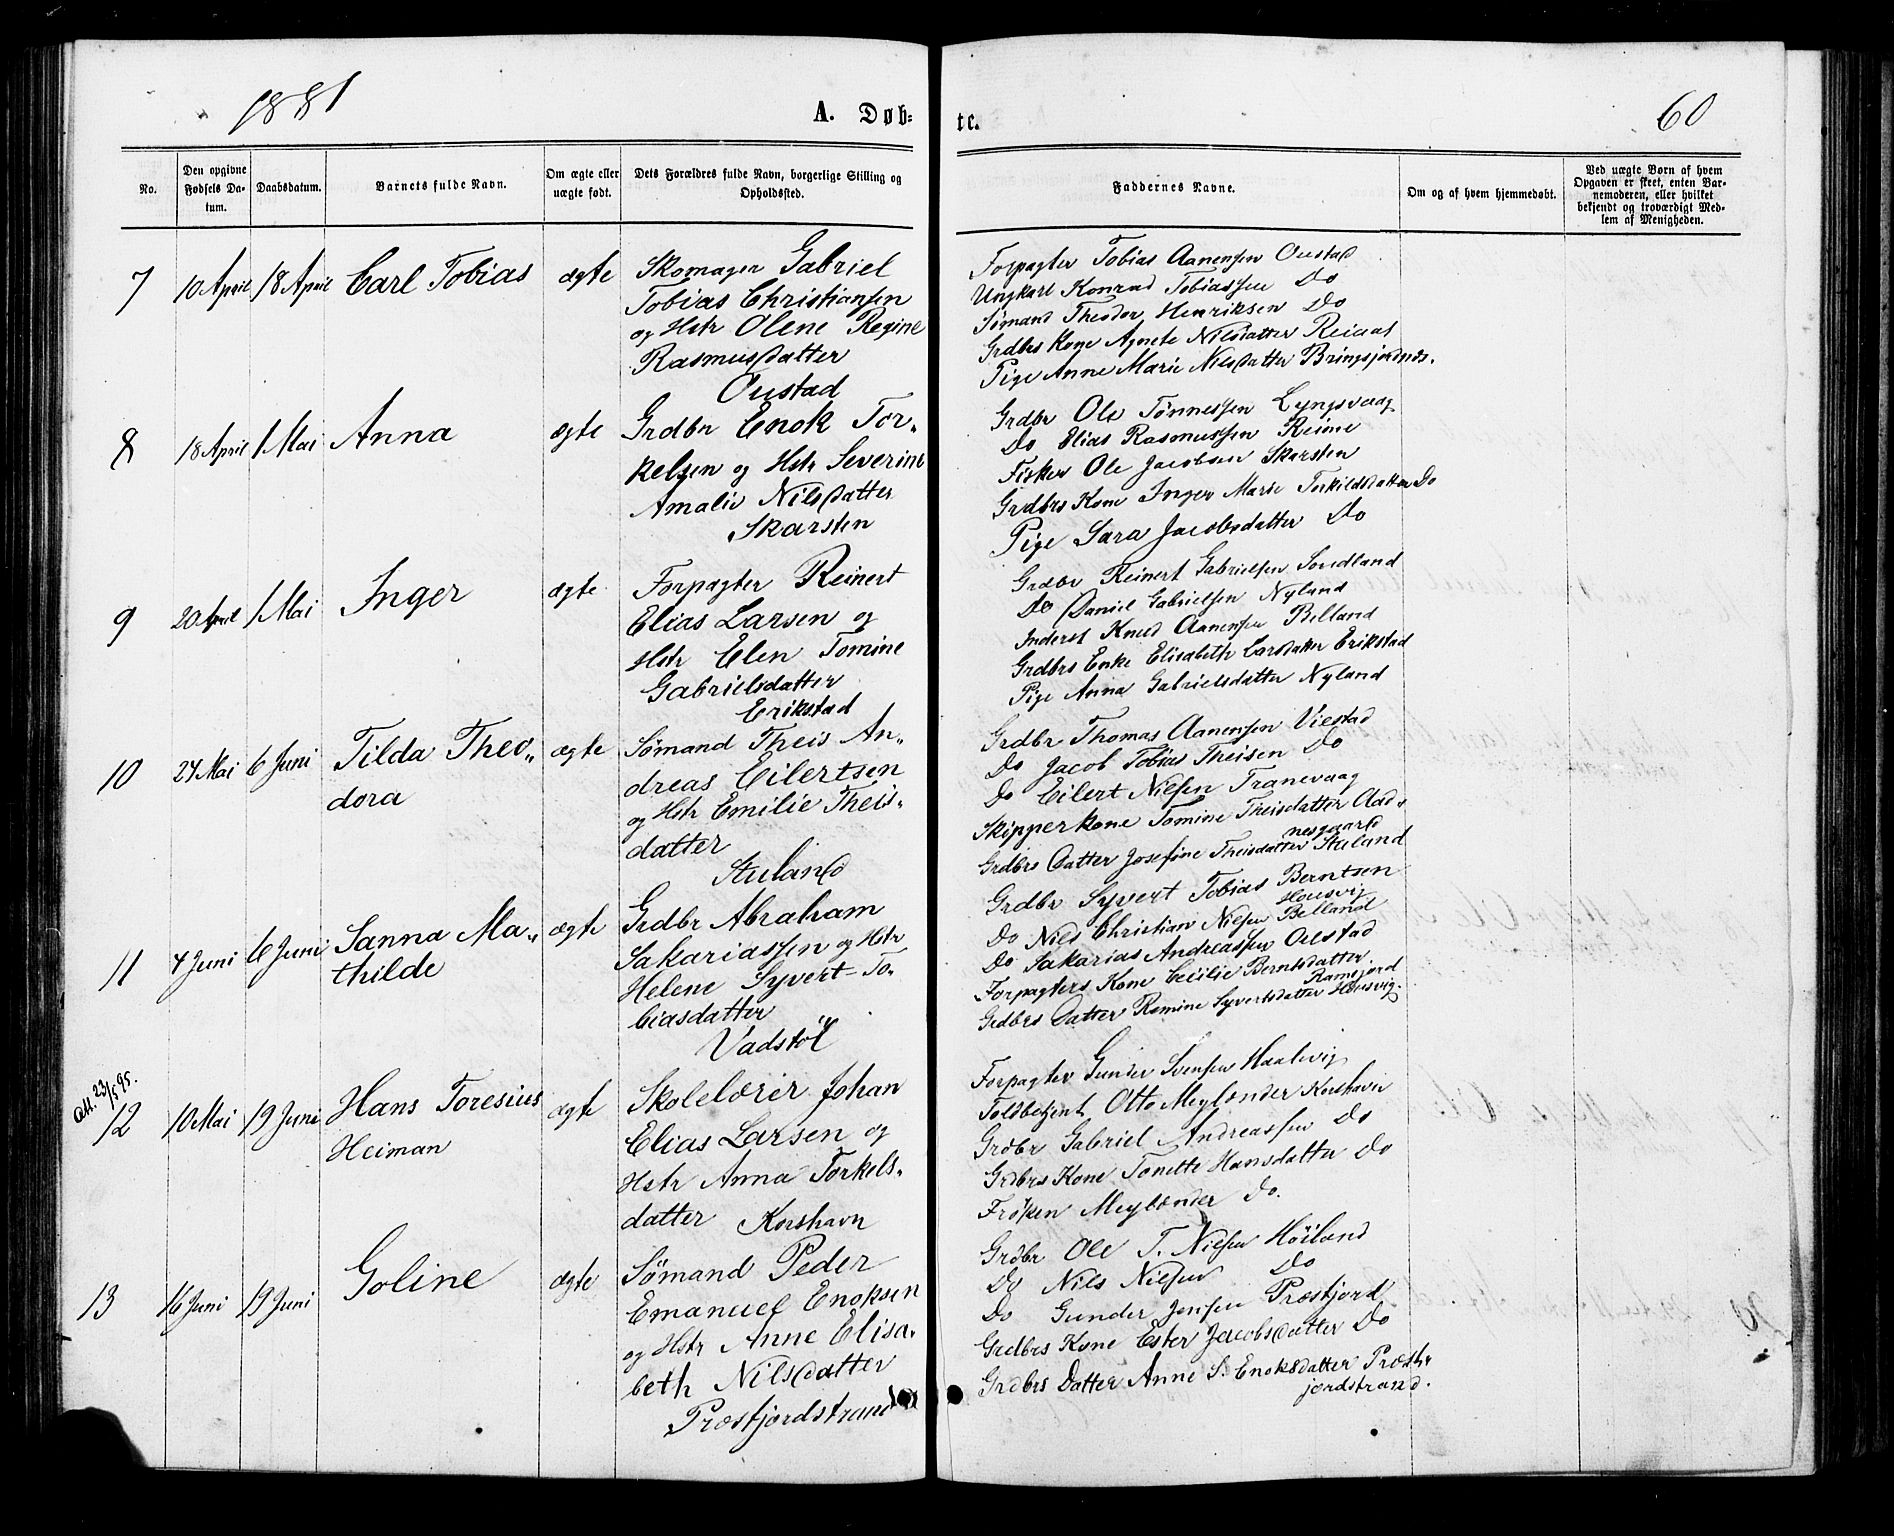 1881
A. Døb-
te.
60
No.
Den opgivne
Fødsels Da-
tum.
Daabsdatum.
Barnets fulde Navn.
Om ægte eller
uægte født.
Dets Forældres fulde Navn, borgerlige Stilling og
Opholdssted.
Faddernes Navne.
Om og af hvem hjemmedøbt.
Ved uægte Born af hvem
Opgaven er skeet, enten Bar-
nemoderen, eller hvilket
bekjendt og troværdigt Med-
lem af Menigheden.
7 10 April 18 April Carl Tobias ægte Skomager Gabriel
Tobias Christiansen
og Hstr Olene Regine
Rasmusdatter
Oustad
Forpagter Tobias Aanensen Oustad
Ungkarl Konrad Tobiassen Do
Sømand Theodor Henriksen Do
Grdbrs Kone Agnete Nilsdatter Reiaas
Pige Anne Marie Nilsdatter Bringsjordnæs.
8 18 April 1 Mai Anna ægte Grdbr Enok Tor„
kelsen og Hstr Severine
Amalie Nilsdatter
Skarsten
Grdbr Ole Tønnessen Lyngsvaag
Do Elias Rasmussen Reime
Fisker Ole Jacobsen Skarsten
Grdbrs Kone Inger Marie Torkildsdatter Do
Pige Sara Jacobsdatter Do
9 20 April 1 Mai Inger ægte Forpagter Reinert
Elias Larsen og
Hstr Elen Tomine
Gabrielsdatter
Erikstad
Grdbr Reinert Gabrielsen Sordland
Do Daniel Gabrielsen Nyland
Inderst Knud Aanensen Belland
Grdbrs Enke Elisabeth Larsdatter Erikstad
Pige Anna Gabrielsdatter Nyland
10 24 Mai 6 Juni Tilda Theo„
dora
ægte Sømand Theis An„
dreas Eilertsen
og Hstr Emilie Theis„
datter
Stuland
Grdbr Thomas Aanensen Viestad
Do Jacob Tobias Theisen Do
Do Eilert Nielsen Tranevaag
Skipperkone Tomine Theisdatter Aad„
nesgaard
Grdbrs Datter Josefine Theisdatter Stuland
11 4 Juni 6 Juni Sanna Ma„
thilde
ægte Grdbr Abraham
Sakariassen og Hstr
Helene Syvert-To„
biasdatter
Vadstøl
Grdbr Syvert Tobias Berntsen
Housvig
Do Nils Christian Nielsen Belland
Do Sakarias Andreassen Oustad
Forpagters Kone Cecilie Berntsdatter
Ramsjord
Grdbrs Datter Romine Syvertsdatter Housvig.
Att. 23/5 95.
12 10 Mai 19 Juni Hans Toresius
Heiman
ægte Skolelærer Johan
Elias Larsen og
Hstr Anna Torkels„
datter Korshavn
Forpagter Gunder Svensen Haalevig
Toldbetjent Otto Meylænder Korshavn
Grdbr Gabriel Andreassen Do
Grdbrs Kone Tonette Hansdatter Do
Frøken Meylænder Do.
13 16 Juni 19 Juni Goline ægte Sømand Peder
Emanuel Enoksen
og Hstr Anne Elisa„
beth Nilsdatter
Præstjordstrand
Grdbr Ole T. Nielsen Høiland
Do Nils Nielsen Do
Do Gunder Jensen Præstjord
Grdbrs Kone Ester Jacobsdatter Do
Grdbrs Datter Anne S. Enoksdatter Præst„
jordstrand.